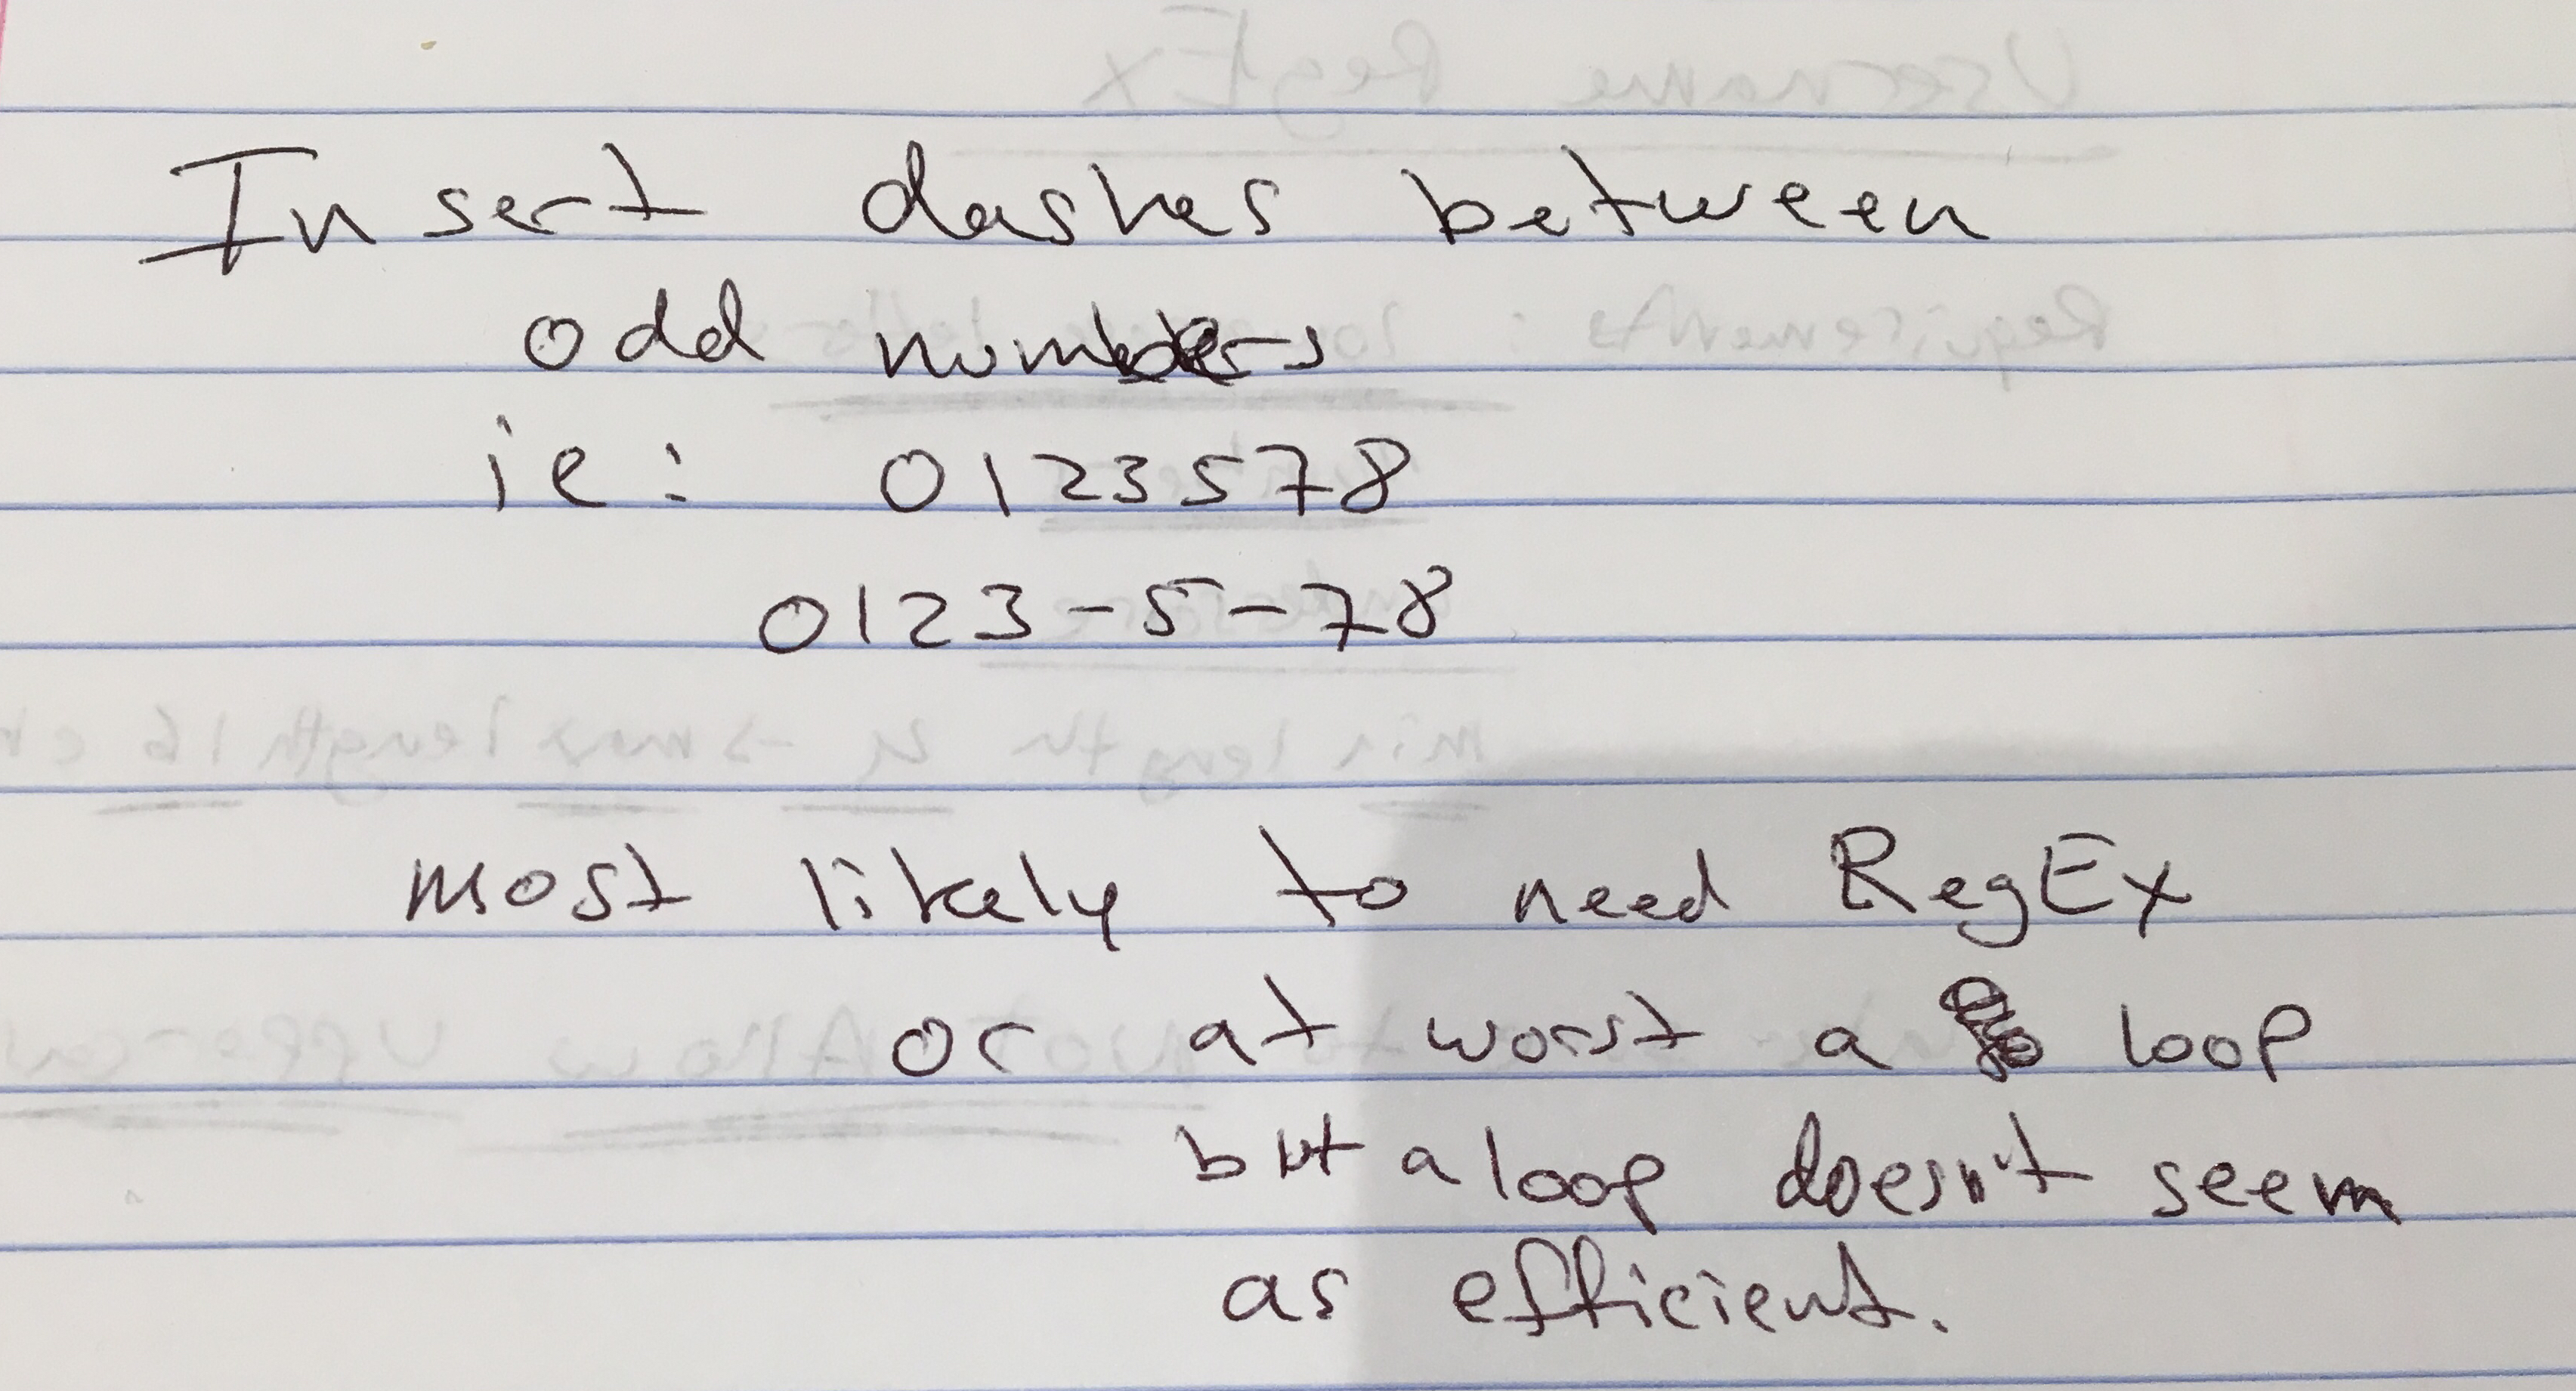 Insert dashes between
odd numbers
ie: 0123578
0123-5-78
most likely to need RegEx
or at worst a loop
but a loop doesn't seem
as efficient.